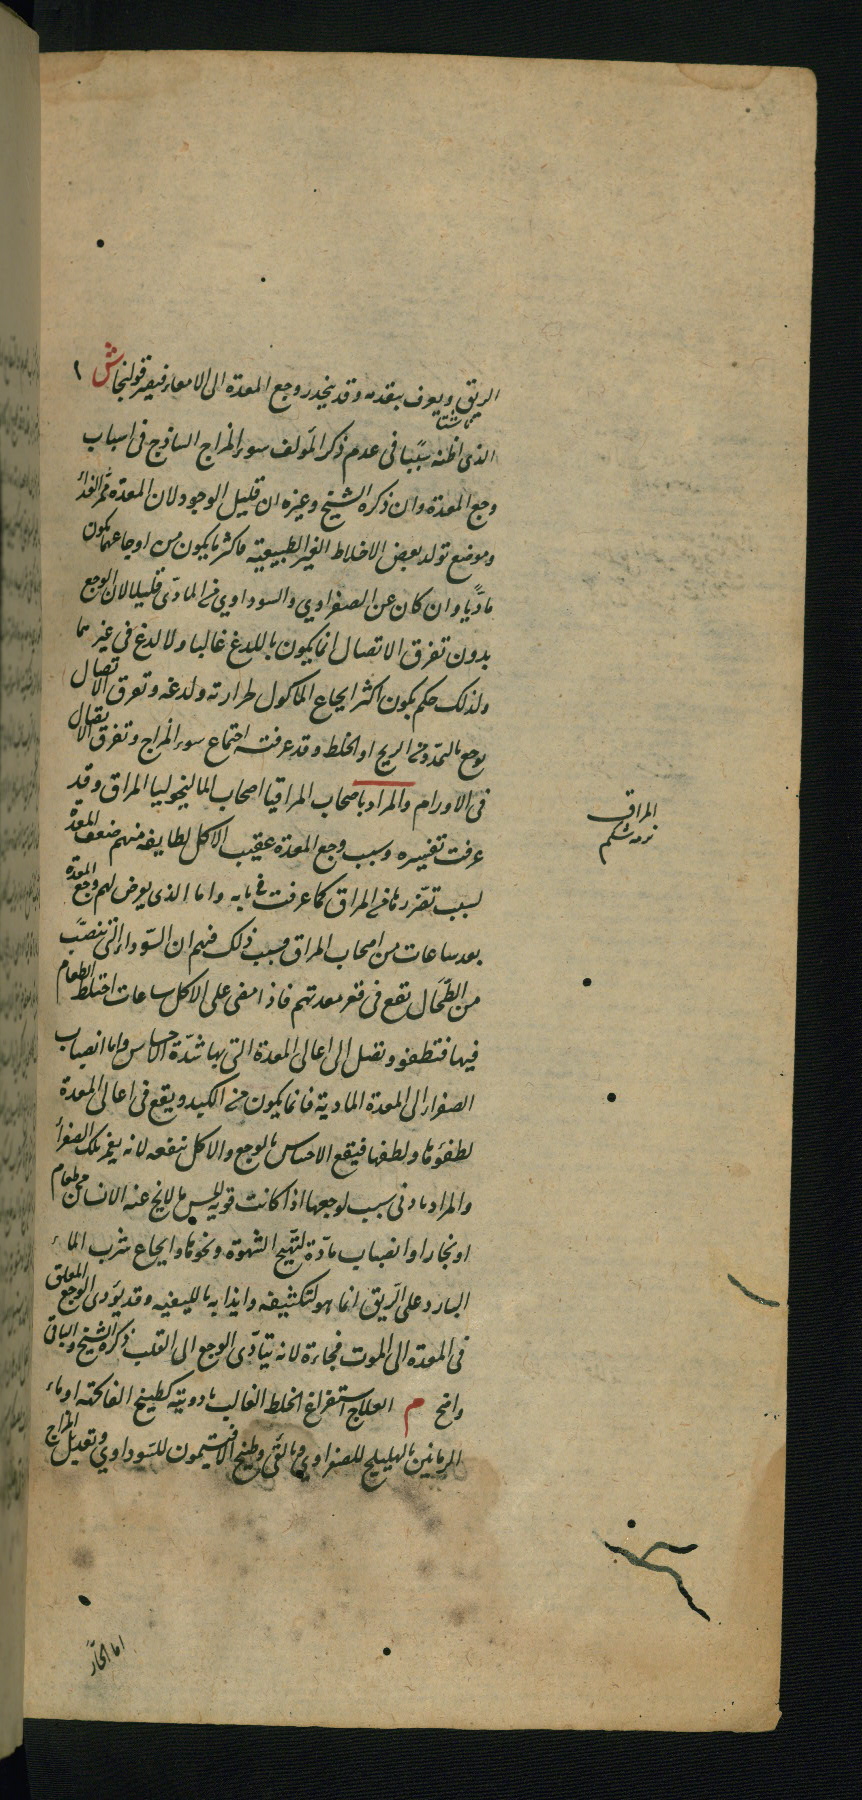 الريق ويعرف بفقده وقد ينحدر وجع المعدة الى الامعاء فيصير قولنجا ش
الذى اظنه سببا فى عدم ذكر المؤلف سوء المزاج الساذج فى اسباب
وجع المعدة وان ذكره الشيخ وغيره ان قليل الوجود لان المعدة ممر الغذاء
وموضع تولد بعض الاخلاط الغير الطبيعية فاكثر ما يكون من اوجاعها يكون
ماديا وان كان عن الصفراوي والسوداوي فى المادى قليلا لان الوجع
بدون تفرق الاتصال انما يكون باللدغ غالبا ولا لدغ في غيرهما
ولذلك حكم بكون اكثر ايجاع الماكول لحرارته ولدغه وتفرق الاتصال
يوجع بالتمدد من الريح او الخلط وقد عرفت اجتماع سوء المزاج وتفرق الاتصال
فى الاورام والمراد باصحاب المراقيا اصحاب الماليخوليا المراق وقد
عرفت تفسيره وسبب وجع المعدة عقيب الاكل لطايفة منهم ضعف المعدة
لسبب تضررها فى المراق كما عرفت فى بابه واما الذى يعرض لهم وجع المعدة
بعد ساعات من اصحاب المراق فسبب ذلك فيهم ان السوداء التى تنصب
من الطحال تقع فى قعر معدتهم فاذا مضى على الاكل ساعات اختلط الطعام
فيها فتطفو وتصل الى اعالى المعدة التى بها شدة الاحساس واما انصباب
الصفراء الى المعدة المادية فانما يكون من الكبد ويقع فى اعالى المعدة
لطفوها ولطفها فيقع الاحساس بالوجع والاكل ينفعه لانه يغمر تلك الصفراء
والمراد بادنى سبب لوجعها اذا كانت قوية الحس ما لا ينج عنه الانسان من طعام
او بخار او انصباب مادة لتهيج الشهوة ونحوها وايجاع شرب الماء
البارد على الريق انما هو لتكثيفه وايذائه بالليفية وقد يؤدى الوجع المعلق
فى المعدة الى الموت فجاءة لانه يتأدى الوجع الى القلب ذكره الشيخ والباقى
واضح م العلاج استفراغ الخلط الغالب بادوية كطبيخ الفاكهة او ماء
الرمانين بالهليلج للصفراوي وبالقى وطبيخ الافتيمون للسوداوي وتعديل المزاج
اما الحار
المراق
نرمه شكم